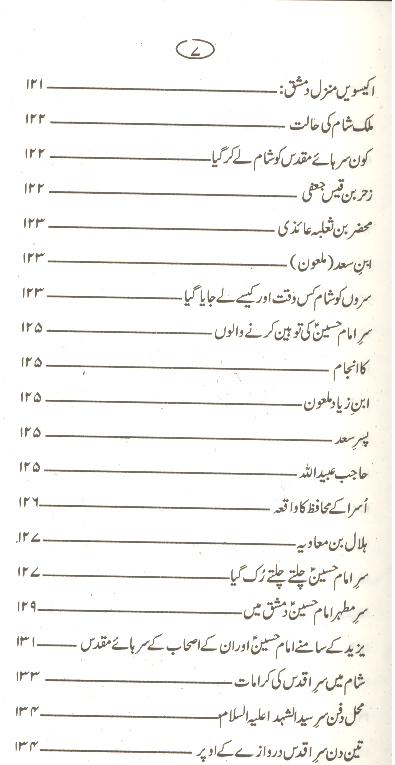 ۷
اکیسویں منزل دمشق: ۱۲۱
ملک شام کی حالت ۱۲۲
کون سر ہائے مقدس کو شام لے کر گیا ۱۲۲
زحر بن قیس جعفی ۱۲۲
محضر بن ثعلبہ عائذی ۱۲۳
ابن سعد (ملعون) ۱۲۳
سروں کو شام کس وقت اور کیسے لے جایا گیا ۱۲۳
سر امام حسینؑ کی توہین کرنے والوں ۱۲۵
کا انجام ۱۲۵
ابن زیاد ملعون ۱۲۵
پسر سعد ۱۲۵
حاجب عبید اللہ ۱۲۵
اُسرا کے محافظ کا واقعہ ۱۲۶
ہلال بن معاویہ ۱۲۷
سر امام حسینؑ چلتے چلتے رُک گیا ۱۲۷
سر مطہر امام حسینؑ دمشق میں ۱۲۹
یزید کے سامنے امام حسینؑ اور ان کے اصحاب کے سر ہائے مقدس ۱۳۱
شام میں سر اقدس کی کرامات ۱۳۳
محل دفن سر سید الشہدا علیہ السلام ۱۳۴
تین دن سر اقدس دروازے کے اوپر ۱۳۴